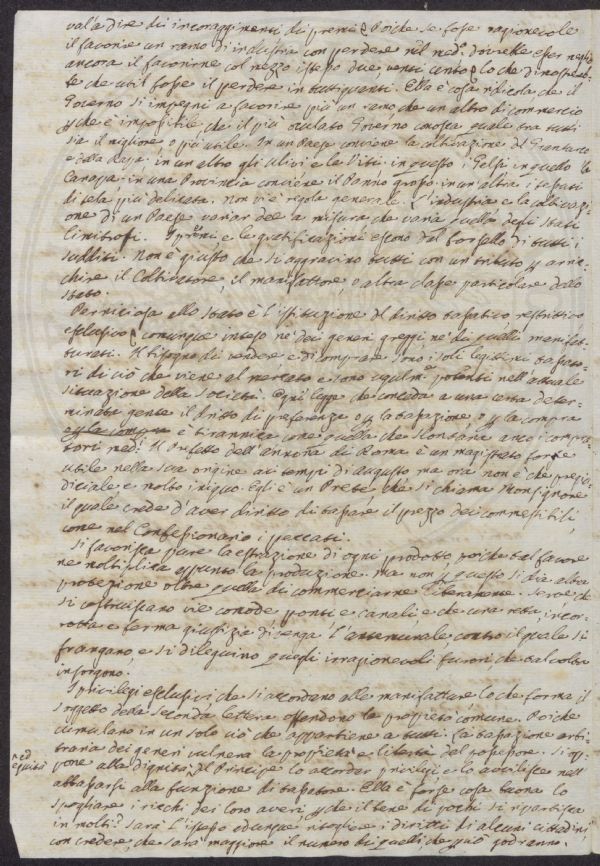 val'a dire di incoraggimenti di premi? Poiche se fosse ragionevole
il favorire un ramo di industria con perdere nel med.º dovrebbe esser
ancora il favorirne col mezzo istesso due, venti cento, lo che dimostrereb-
be che util fosse il perdere in tutti quanti. Ella è cosa ridicola che il
Governo si impegni a favorire più un ramo, che un altro di commercio
che è impossibile che il più oculato Governo conosca quale tra tutti
sia il migliore o più utile. In un Paese conviene la coltivazione del Granturco
e della Rapa in un altro gli ulivi e le Viti in questo i Gelsi in quello la
Canapa in una Provincia conviene il Panno grosso in un'altra i tessuti
di tela più delicata. Non vi è regola generale. L'industria e la coltivazi-
one di un Paese variar dee a misura che varia quella degli stati
limitrofi. I premi e le gratificazioni escono dal borsello di tutti i
sudditi. Non è giusto che si aggravino tutti con un tributo p arric-
chire il Coltivatore, il manifattore, o altra classe particolare dello
stato.
Perniciosa allo stato è l'istituzione del diritto tassativo restrittivo
esclusivo comunque inteso nè dei generi greggi nè di quelli manifat-
turati. Il bisogno di vendere e di comprare sono i soli legitimi tassato-
ri di ciò che viene al mercato e sono ugualm.e potenti nell'attuale
situazione della società. Ogni legge che conceda a una certa deter-
minata gente il dritto di preferenza o p la tassazione, o p la compra
è tirannica come quella che scontana anco i compra-
tori med.i Il Prefetto dell'annona di Roma è un magistrato forse
utile nella sua origine ai tempi di Augusto ma ora non è che pregiu-
diciale e molto iniquo. Egli è un Prete, che si chiama Monsignore
il quale crede d'aver diritto di tassare il prezzo dei commestibili,
come nel Confessionario i peccati.
Si favorisca pure la estrazione di ogni prodotto poiche tal favore
ne moltiplica appunto la produzione. Ma non p questo si dia altra
protezione oltre quella di commerciarne liberamente. Serve che
si costruiscano vie comode ponti e canali e che una retta, incor-
rotta e ferma giustizia divenga l'antemurale contro il quale si
frangano e si dileguino quegli irragionevoli furori che tal volta
insorgono.
I privilegi esclusivi che si accordano alle manifatture lo che forma il
soggetto della seconda lettera offendono la proprietà comune. Poiche
cumulano in un solo ciò che appartiene a tutti. La tassazione arbi-
traria dei generi vulnera la proprietà e libertà del possessore. Si op-
pone alla dignità ed equità del Principe lo accordar privilegi e lo avvilisce nell'
abbassarsi alla funzione di tassatore. Ella è forse cosa buona lo
spogliare i ricchi dei loro averi, p che il bene di pochi si ripartisca
in molti? Sarà l'istesso adunque ritogliere i diritti di alcuni cittadini
con credere che sarà maggiore il numero di quelli che ne godranno.